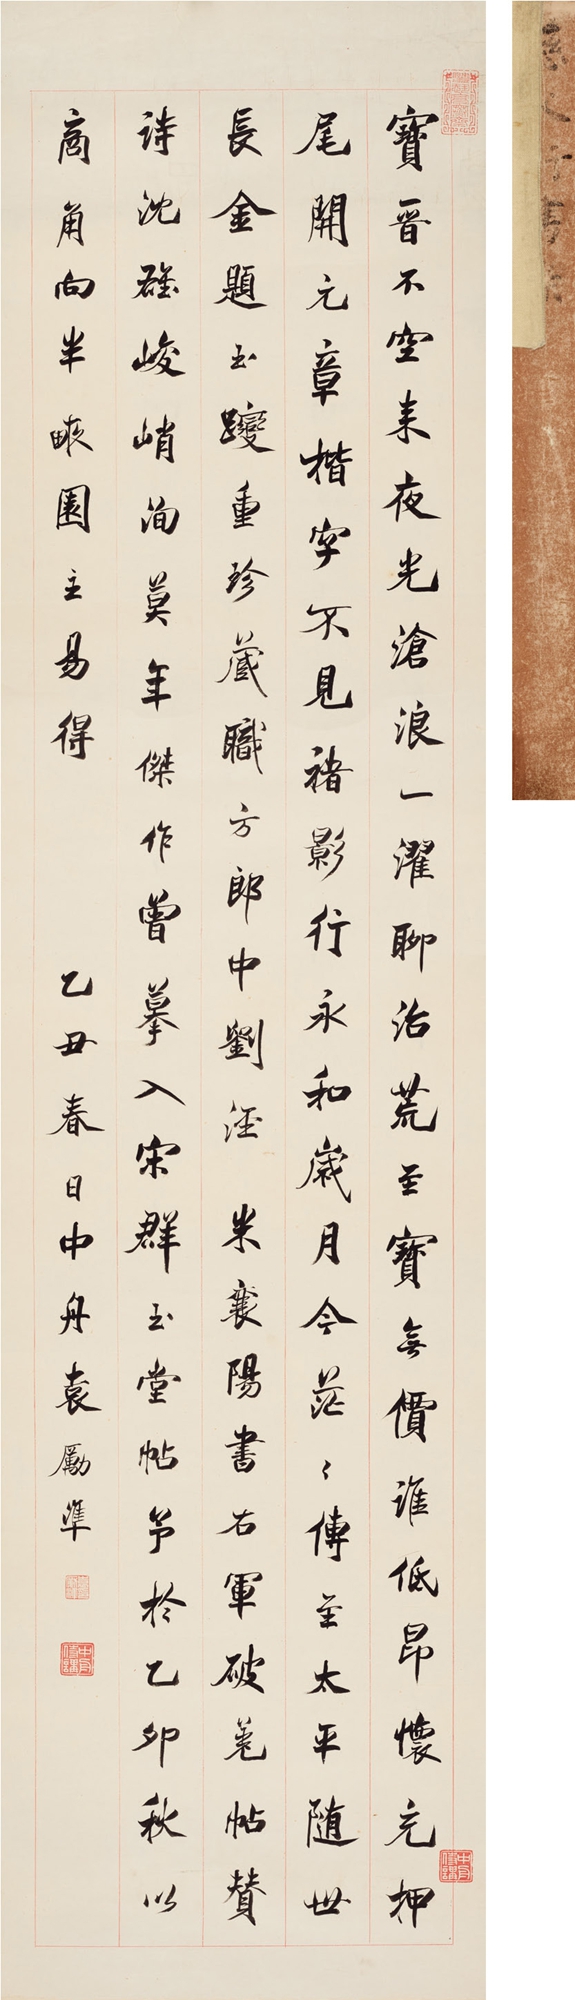 寶晉不空來夜光滄浪一濯聊治荒至寶無價誰低昂懷充押
尾開元章楷字不見褚影行永和歲月今茫〻傳至太平随世
長金題玉躞重珍藏職方郎中劉涇　米襄陽書右軍破羗帖贊
詩沈雄峻峭洵莫年傑作曾摹入宋群玉堂帖予於乙卯秋以
高角向半畞園主易得　乙丑春日中舟袁勵準